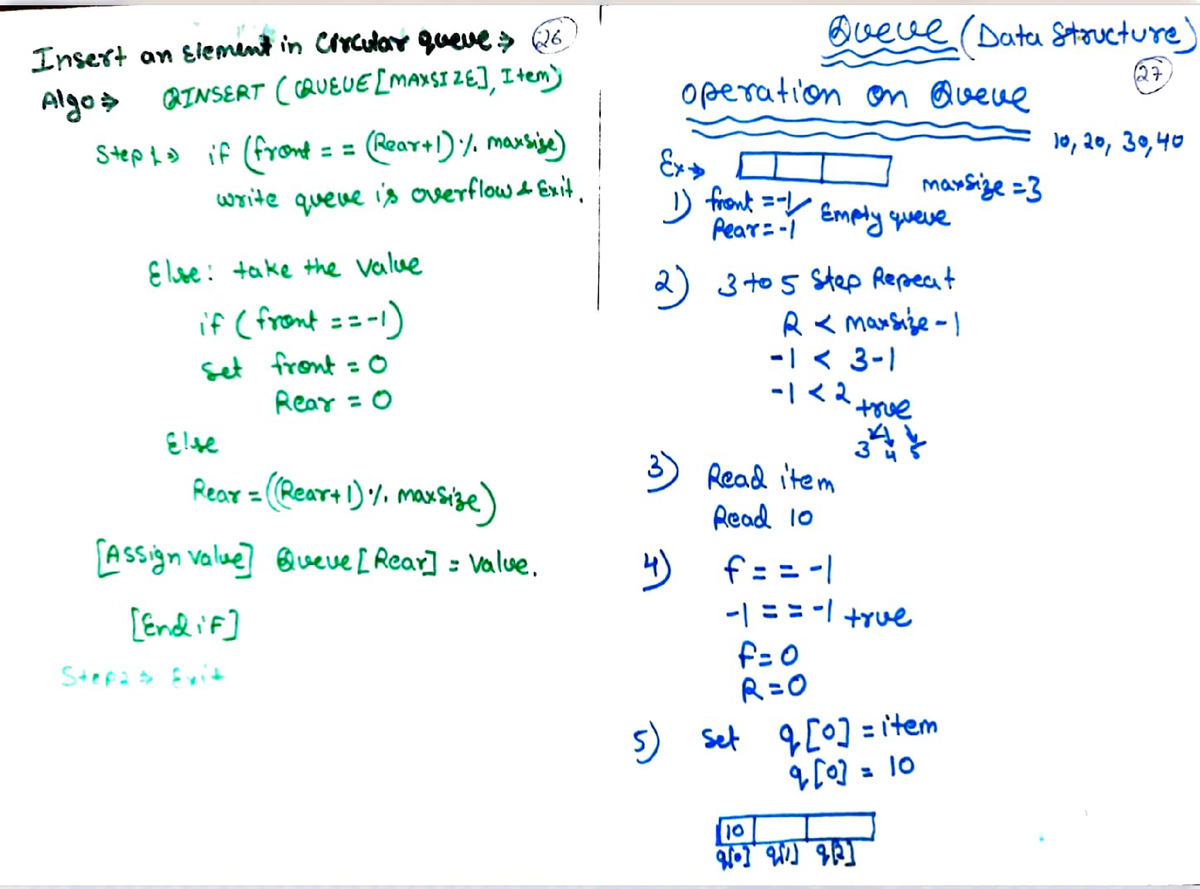 Insert an Element in Circular queue ⇒ 26
Algo ⇒ QINSERT (QUEUE[MAXSIZE], Item)
Step 1 ⇒ if (front == (Rear+1) % maxsize)
write queue is overflow & Exit.
Else: take the value
if (front == -1)
set front = 0
Rear = 0
Else
Rear = ((Rear+1) % maxSize)
[Assign value] Queue[Rear] = Value.
[End if]
Step 2 ⇒ Exit
Queue (Data Structure)
27
operation on Queue
10, 20, 30, 40
Ex →
maxSize = 3
1) front = -1 ✓ Empty queue
Rear = -1
2) 3 to 5 Step Repeat
R < maxSize - 1
-1 < 3-1
-1 < 2 true
3 4 5
3) Read item
Read 10
4) f == -1
-1 == -1 true
f = 0
R = 0
5) Set q[0] = item
q[0] = 10
10
q[0] q[1] q[2]